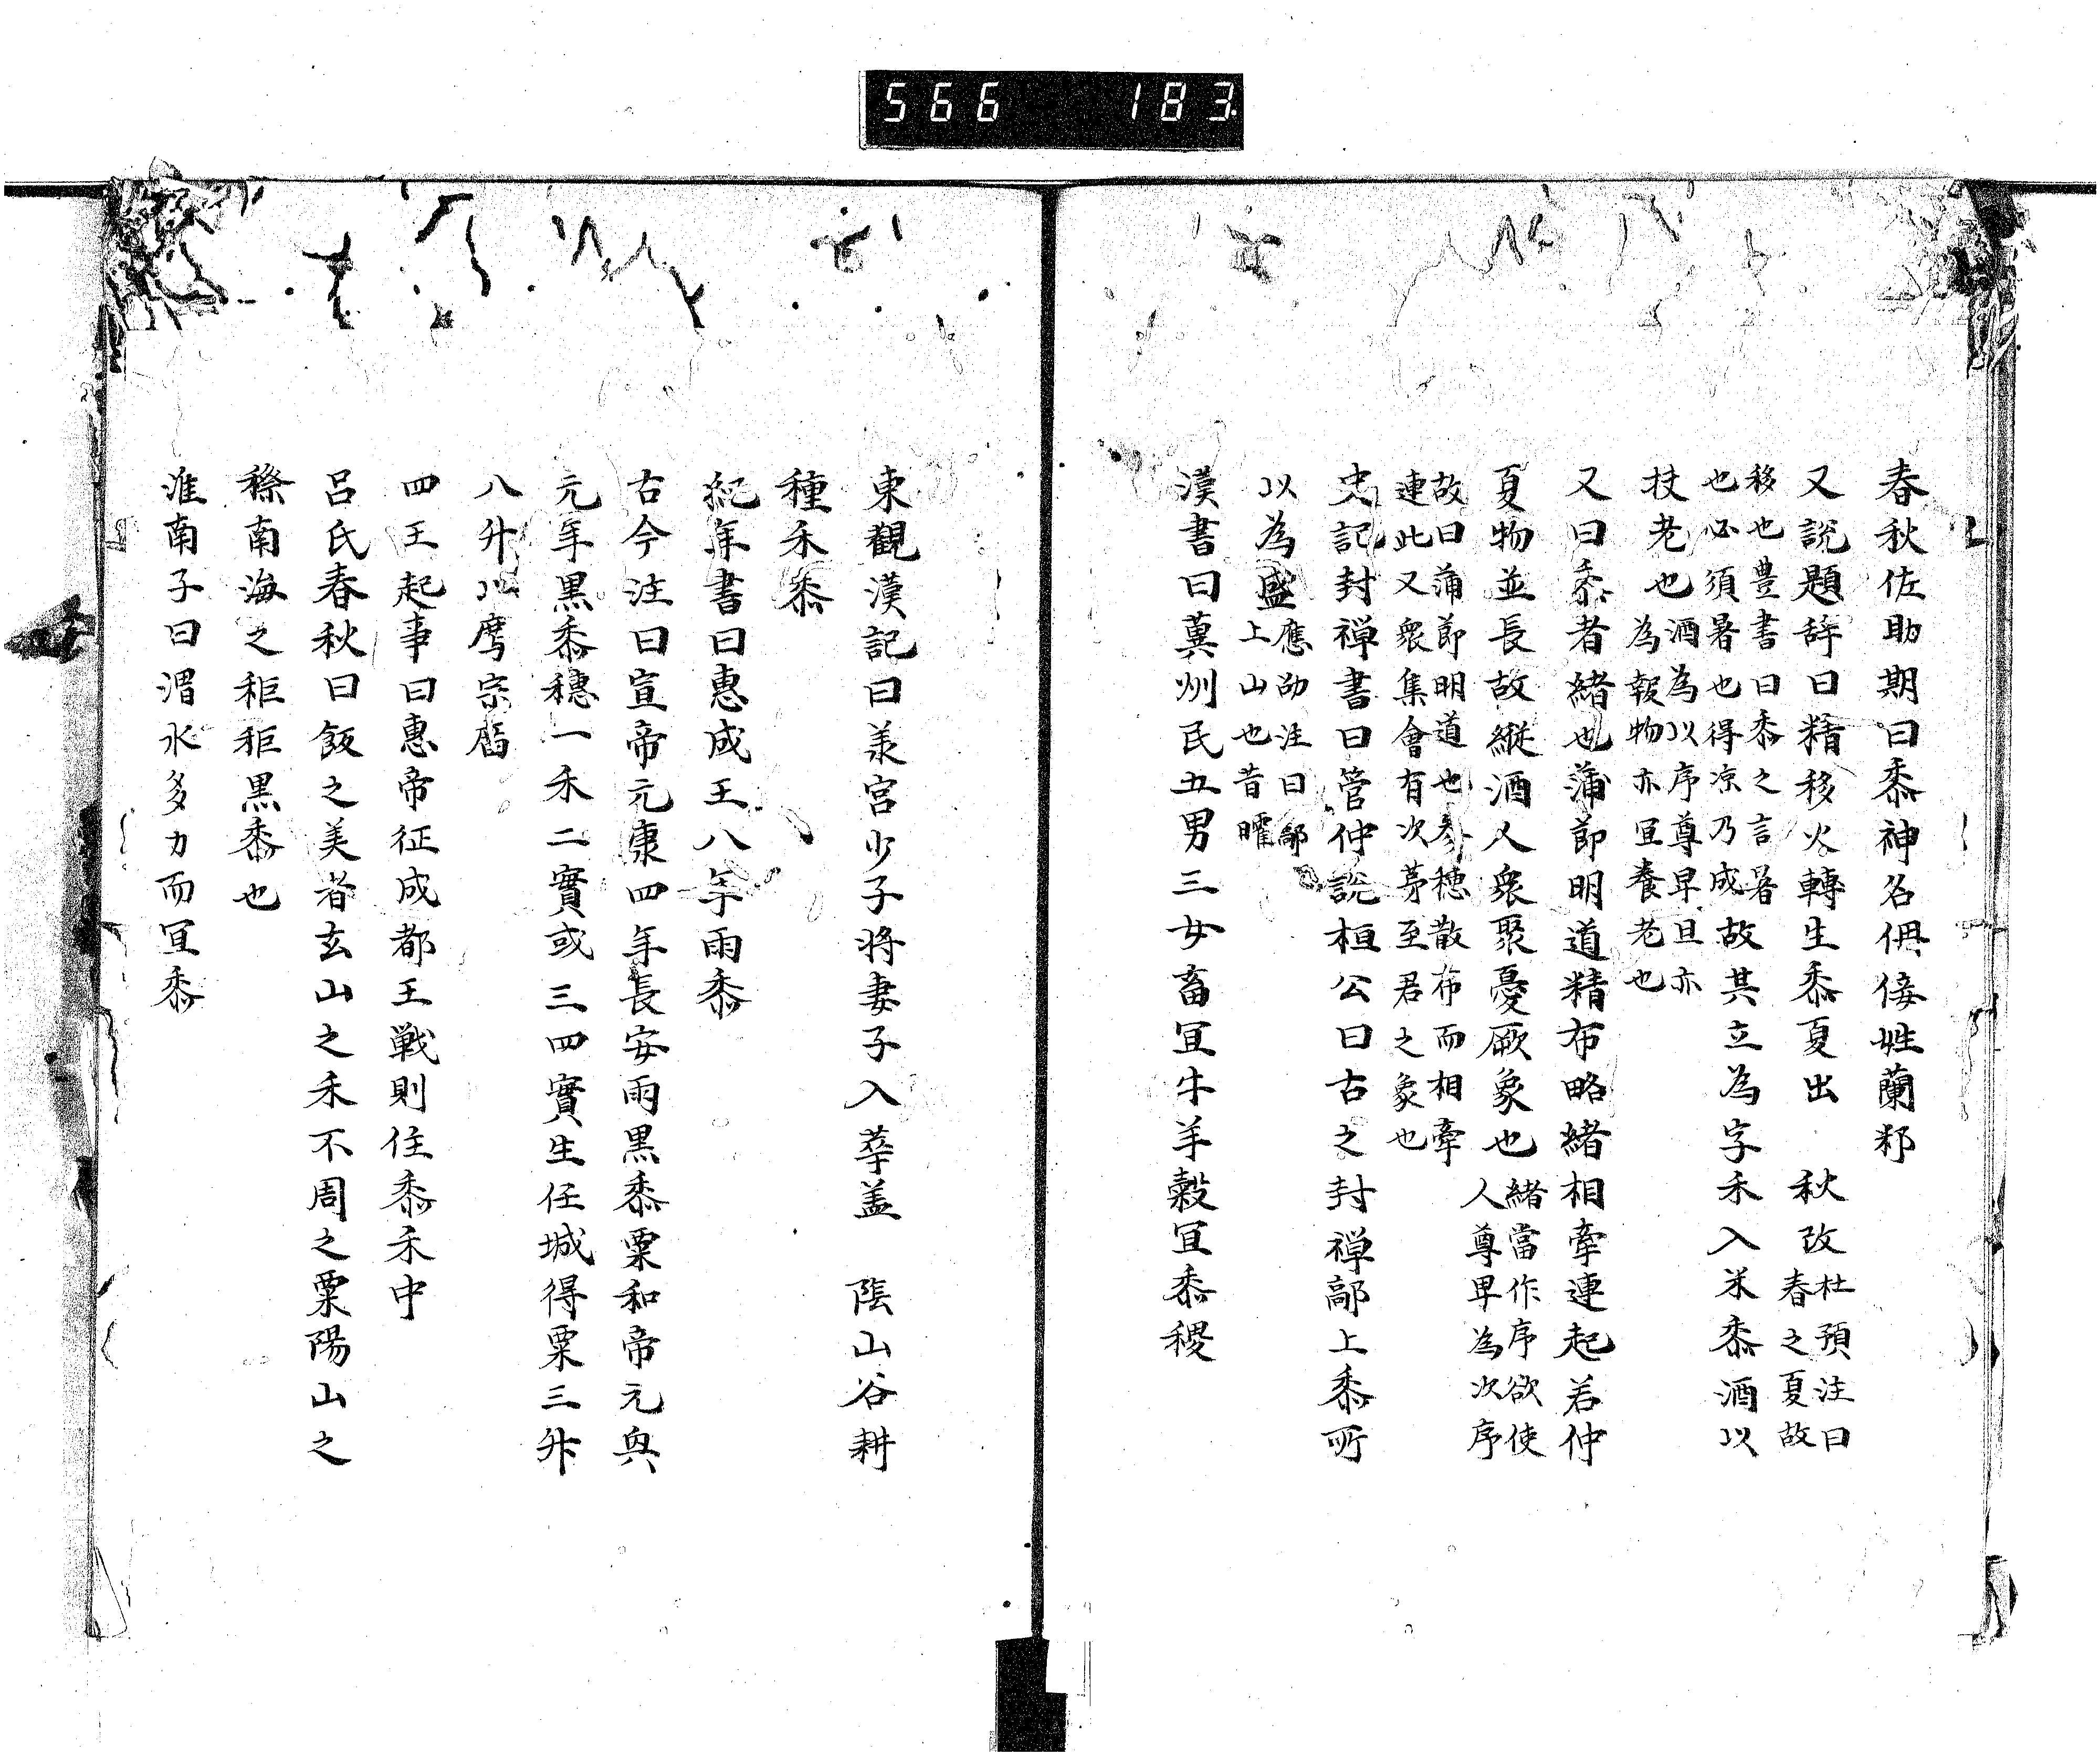 566 183
春秋佐助期曰黍神名倶倿姓蘭邾
又説題辞曰精移火轉生黍夏出 秋改杜預注曰春之夏故
移也豊書曰黍之言暑也必須暑也得凉乃成故其立為字禾入米黍酒以
扶老也酒為以序尊卑且亦為報物亦宜養老也
又曰黍者緒也蒲節明道精布略緒相牽連起若仲
夏物並長故縦酒人衆聚憂厥象也緒當作序欲使人尊卑為次序
故曰蒲節明道也参穂散布而相牽連此又衆集會有次苐至君之象也
史記封禅書曰管仲説桓公曰古之封禅鄗上黍所
以為盛應劭注曰鄗上山也昔㬢
漢書曰冀州民五男三女畜冝牛羊穀冝黍稷
東觀漢記曰羡宮少子将妻子入華盖 陰山谷耕
種禾黍
紀年書曰惠成王八年雨黍
古今注曰宣帝元康四年長安雨黒黍粟和帝元興
元年黒黍穗一禾二實或三四實生任城得粟三升
八升以薦宗廟
四王起事曰惠帝征成都王戦則住黍禾中
呂氏春秋曰飯之美者玄山之禾不周之粟陽山之
穄南海之秬秬黒黍也
淮南子曰渭水多力而冝黍